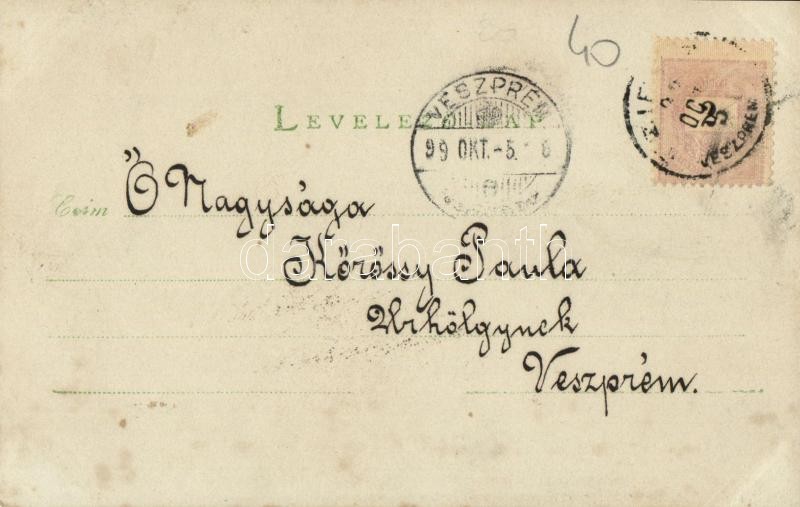 40
LEVELEZŐ LAP
VESZPRÉM
99 OKT.-5.
2
VESZPRÉM
Ő Nagysága
Czim
Kőrössy Paula
Urhölgynek
Veszprém.
databanth